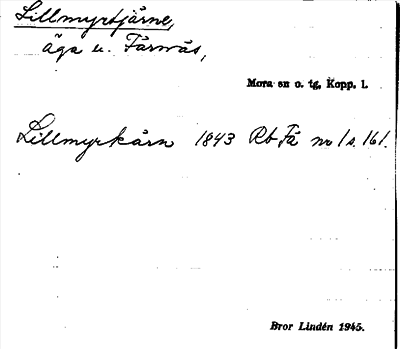 Lillmyrtjärne,
äga u. Färnäs,
Mora sn o. tg, Kopp. l.
Lillmyrkärn 1843 Rb Fä nr 1 s. 161.
Bror Lindén 1945.